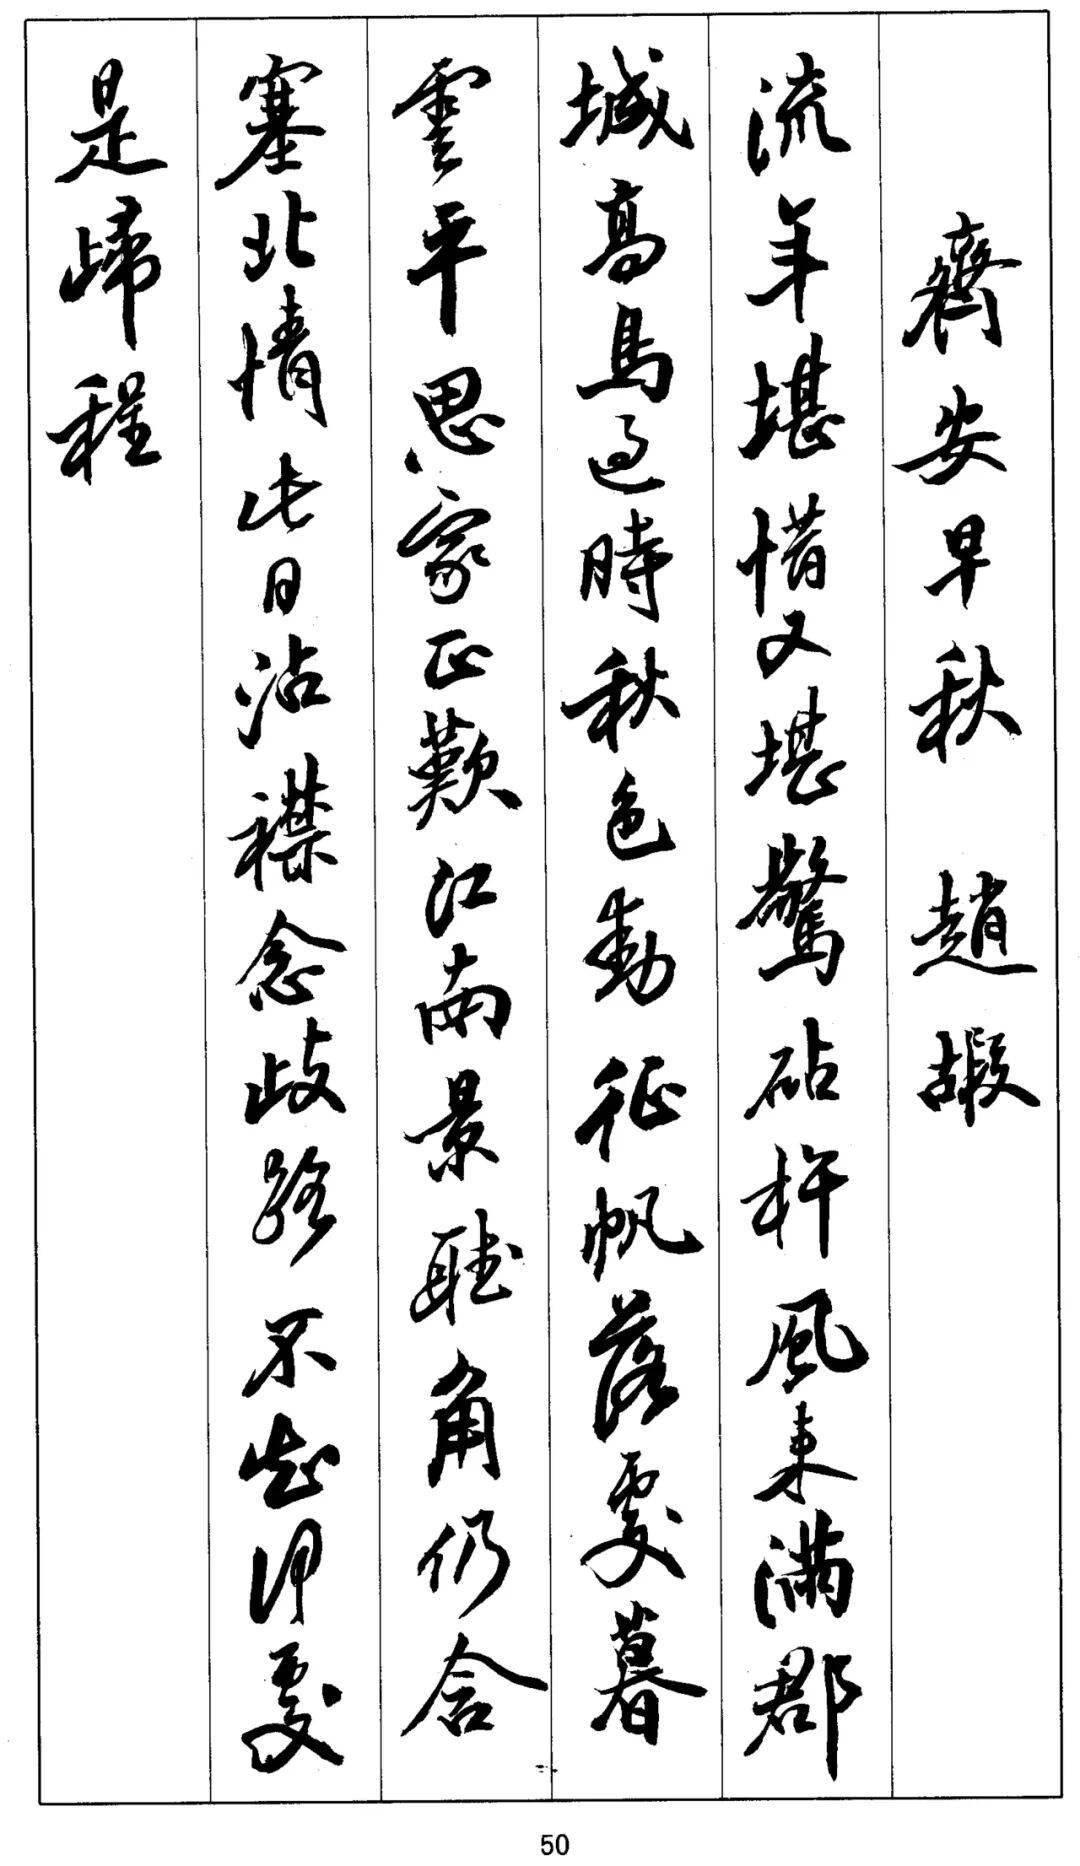 齊安早秋　趙嘏
流年堪惜又堪驚砧杵風來滿郡
城高馬過時秋色動征帆落處暮
雲平思家正歎江南景聽角仍含
塞北情此日沾襟念歧路不知何處
是歸程
50